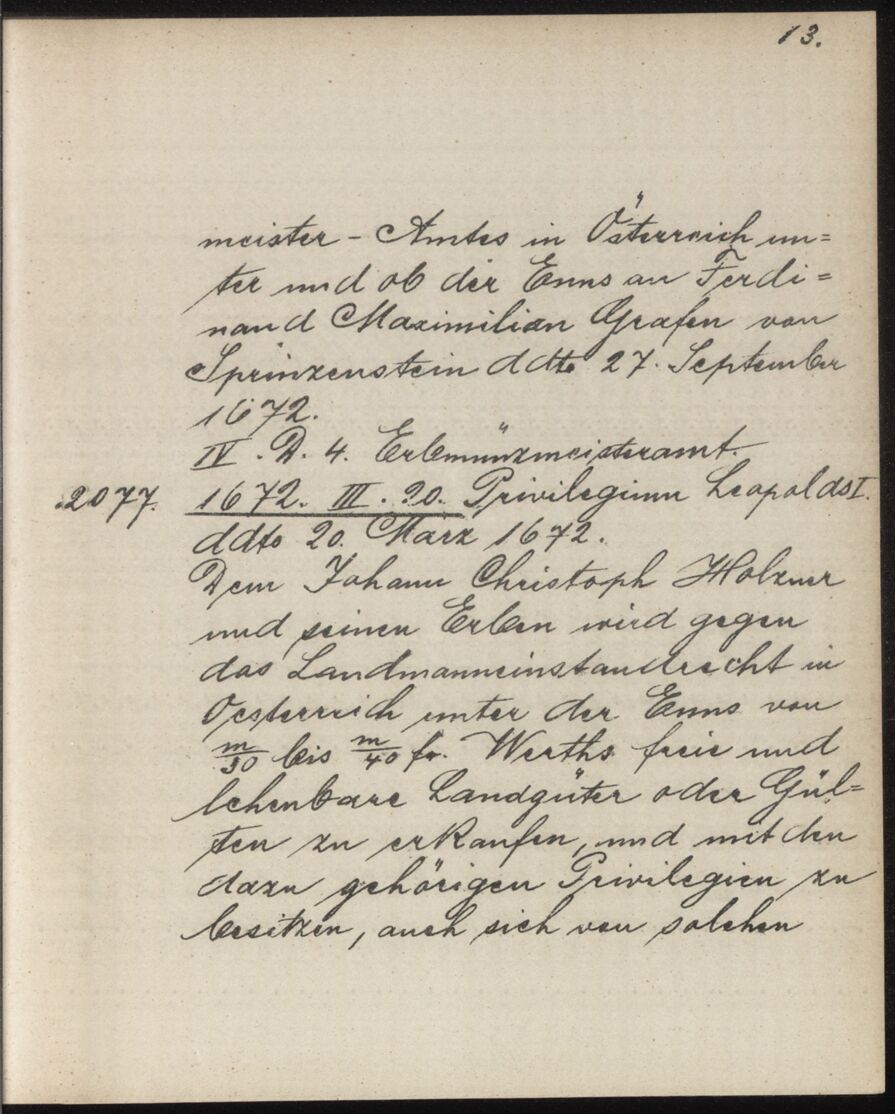 13.
meister-Amtes in Österreich un=
ter und ob der Enns an Ferdi=
nand Maximilian Grafen von
Sprinzenstein ddto 27. September
1672.
IV. D. 4. Erbmünzmeisteramt.
2077. 1672. III. 20. Privilegium Leopolds I.
ddto 20. März 1672.
Dem Johann Christoph Holzner
und seinen Erben wird gegen
das Landmanneinstandrecht in
Oesterreich unter der Enns von
m/30 bis m/40 fr. Werths freie und
lehenbare Landgüter oder Gül=
ten zu erkaufen, und mit den
dazu gehörigen Privilegien zu
besitzen, auch sich von solchen